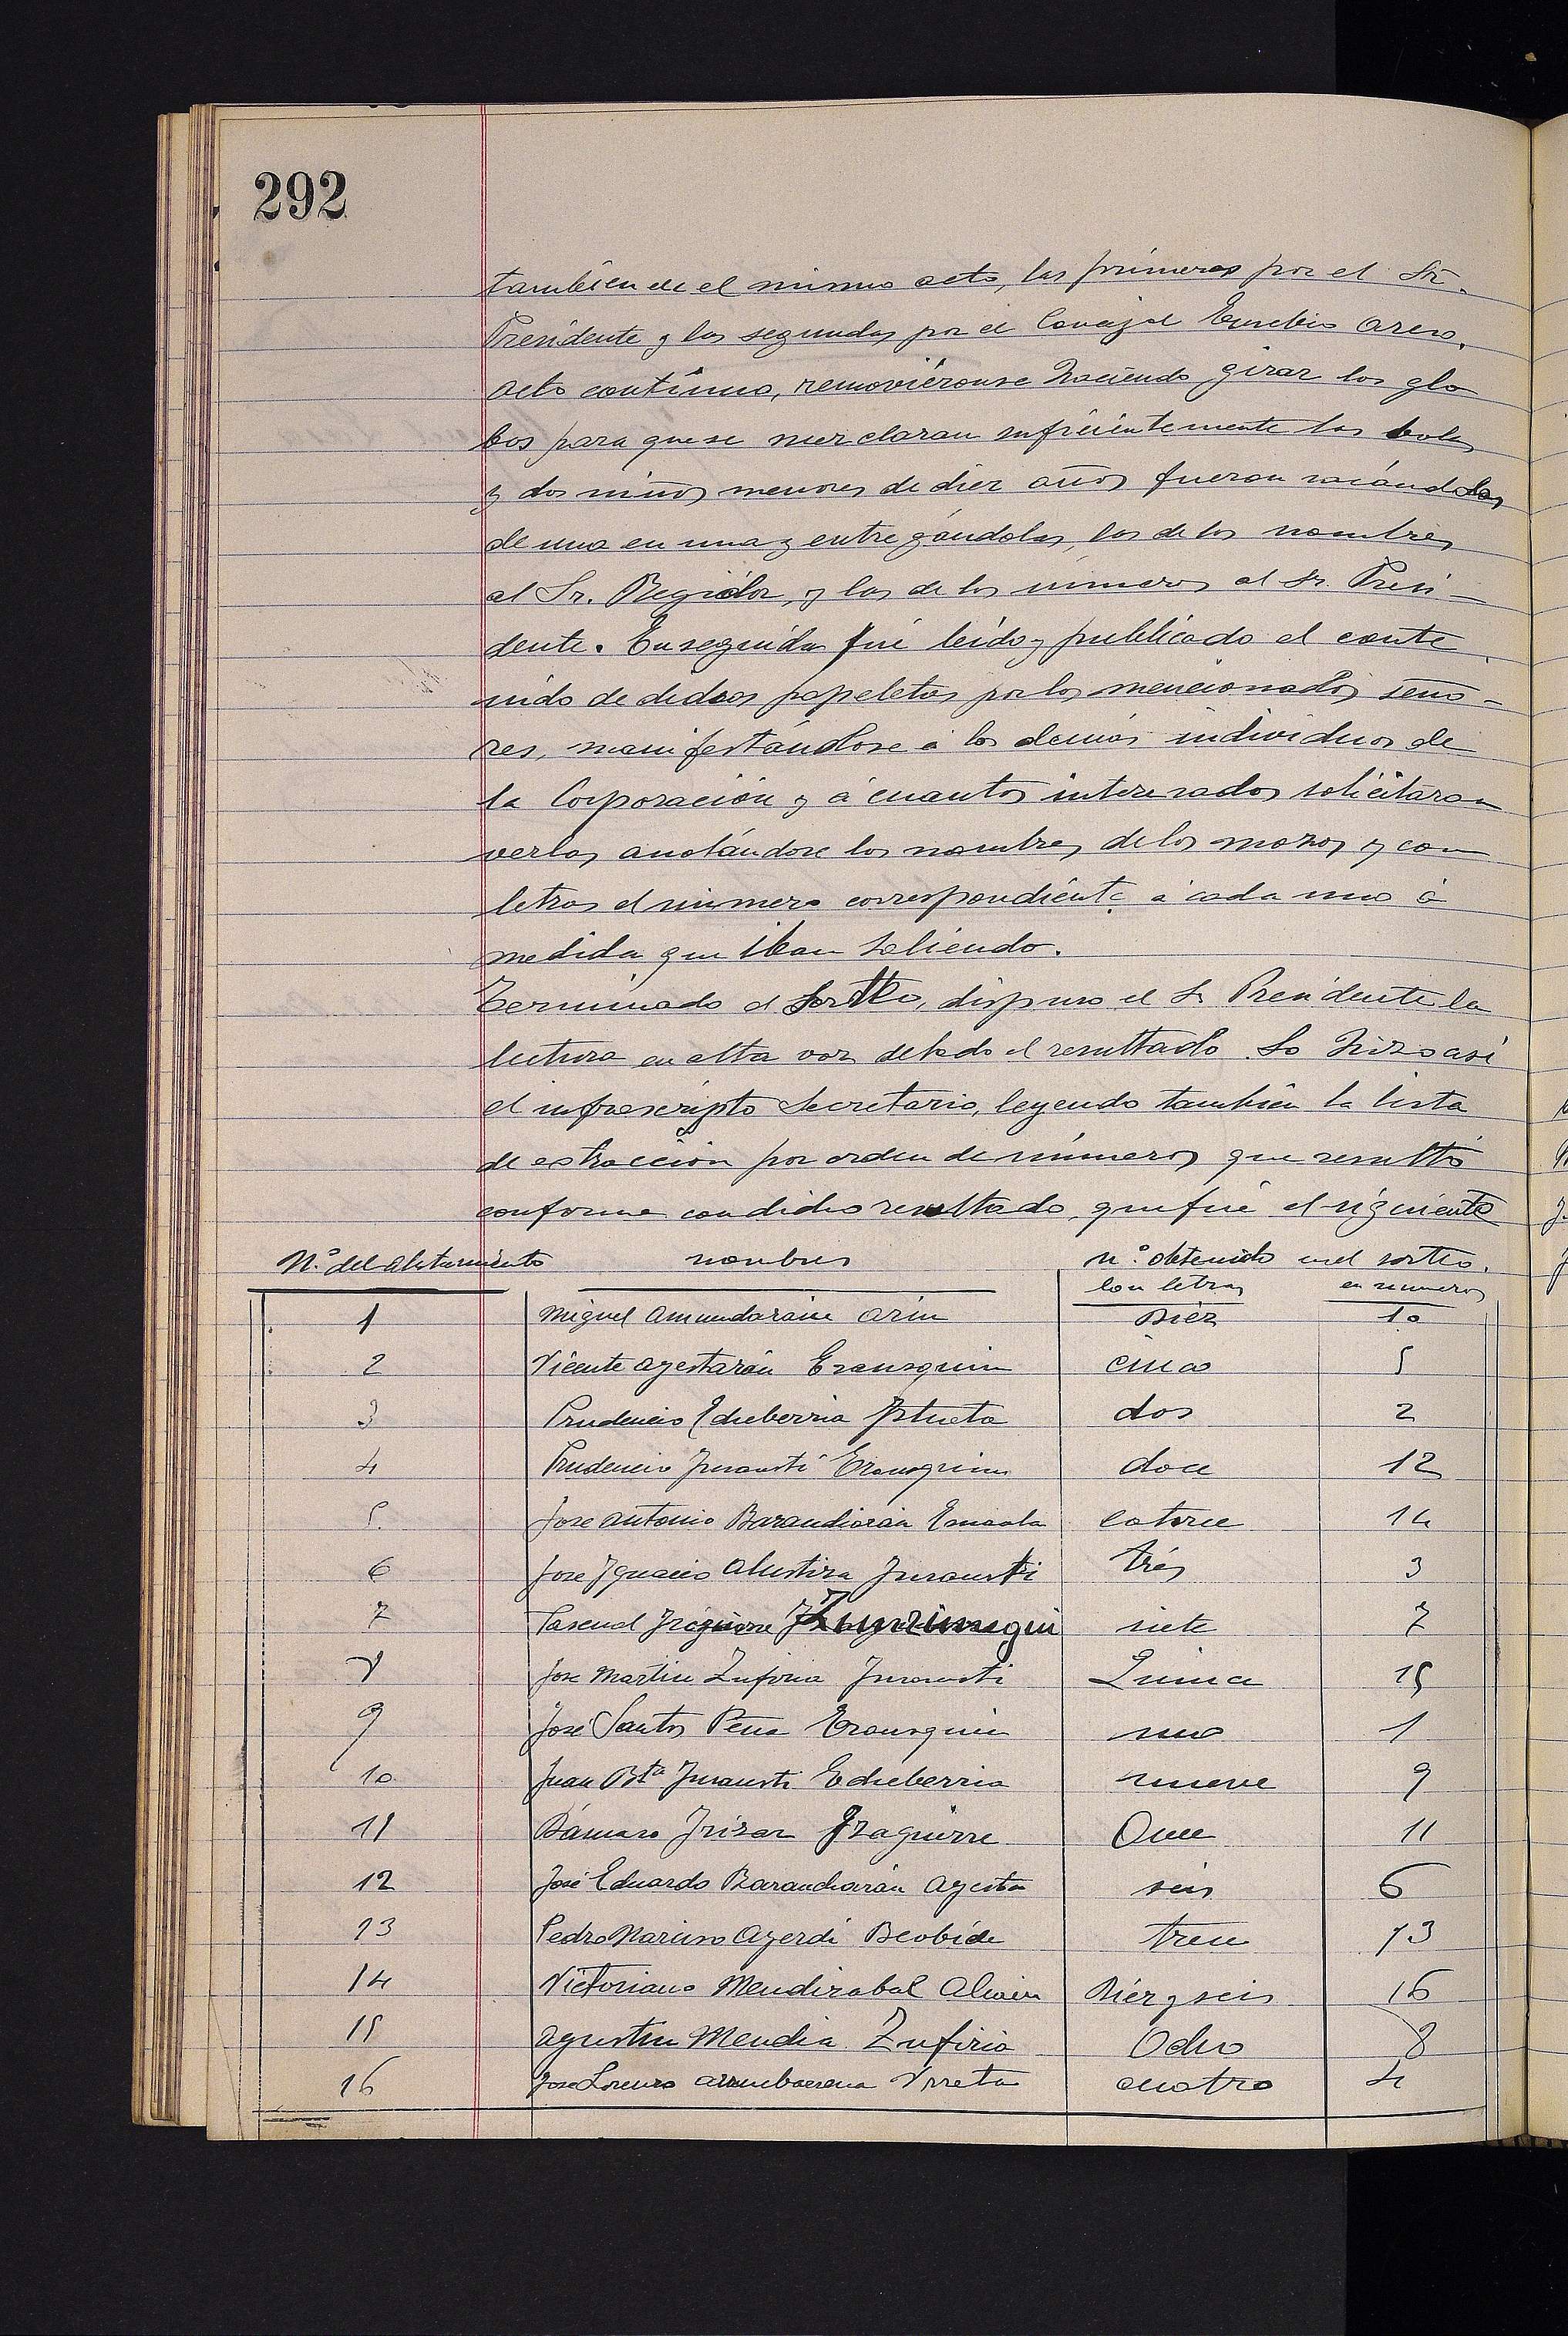 292
tambien en el mismo acto, las primeras por el Sr.
Presidente y las segundas por el Concejal Eusebio Areso.
Acto contínuo, removiéronse haciendo girar los glo
bos para que se merclaran suficientemente las bolas
y dos niños menores de diez años fueron sacándolas
de una en una y entregándolas, las de los nombres
al Sr. Regidor, y las de los números al Sr. Presi-
dente. Enseguida fué leido y publicado el conte
nido de dichas papeletas por los mencionados seño-
res, manifestándose á los demás individuos de
la Corporación y á cuantos interesados solicitaran
verlas, anotándose los nombres de los mozos y con
letras el número correspondiente á cada uno á
medida que iban saliendo.
Terminado el sorteo, dispuso el Sr Presidente la
lectura en alta voz de todo el resultado. Lo hizo asi
el infrascripto Secretario, leyendo también la lista
de estracción por orden de números que resultó
conforme con dicho resultado, que fué el siguiente
N.º del alistamiento nombres n.º obtenido en el sorteo.
Con letras en números
1 Miguel Amundarain Arin Diéz 10
2 Vicente Ayestarán Erausquin cinco 5
3 Prudencio Echeberria Iztueta dos 2
4 Prudencio Jnsausti Erausquin doce 12
5 Jose Antonio Barandiarán catorce 14
6 Jose Ygnacio Alustiza Jnsausti trés 3
7 Pascual Zunzunegui siete 7
8 Jose Martin Zufiria Jnsausti Quince 15
9 José Santos Pena Erausquin uno 1
10 Juan Bta Jnsausti Echeberria nueve 9
11 Dámaso Irizar Yzaguirre Once 11
12 José Eduardo Barandiarán Ayesta seis 6
13 Pedro Narciso Ayerdi Beobide trece 13
14 Victoriano Mendizabal Diéz y seis 16
15 Agustin Mendia Zufiria Ocho 8
16 Jose Lorenzo Urreta cuatro 4